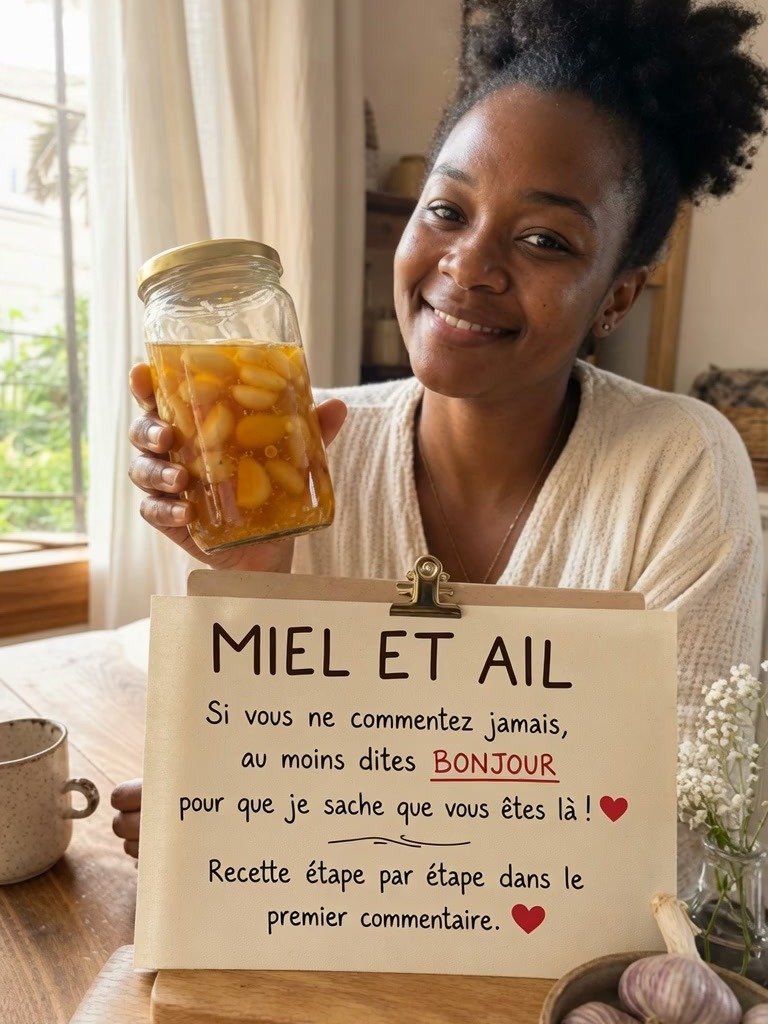 MIEL ET AIL
Si vous ne commentez jamais,
au moins dites BONJOUR
pour que je sache que vous êtes là ! ❤️
Recette étape par étape dans le
premier commentaire. ❤️